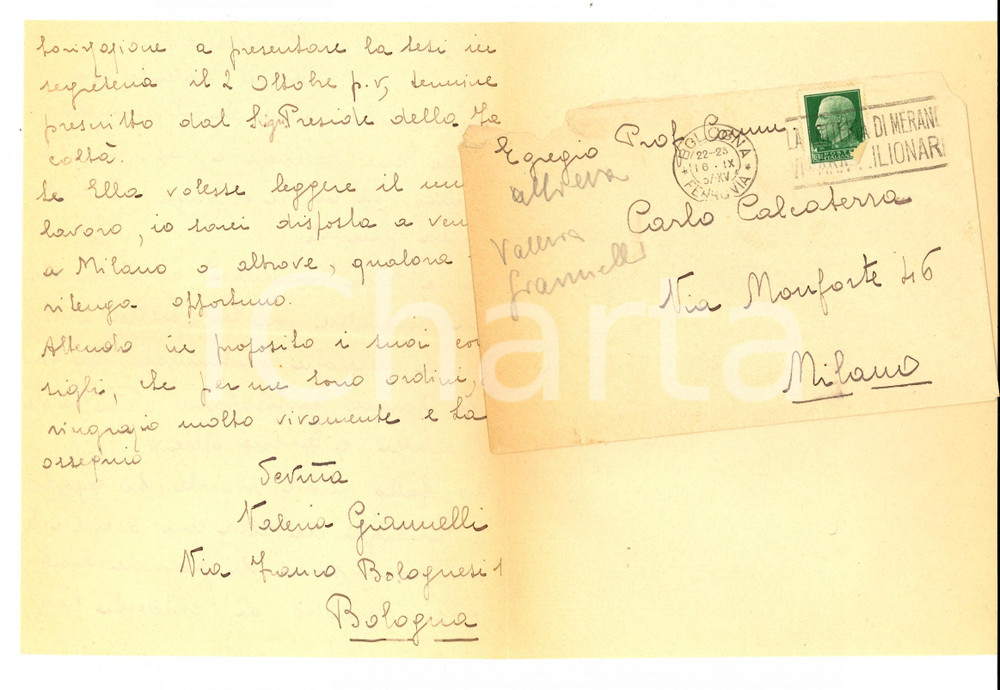 torizzazione a presentare la tesi in
segreteria il 2 Ottobre p.v, termine
prescritto dal Sign Preside della Fa
coltà.
Se Ella volesse leggere il
lavoro, io sarei disposta a
a Milano o altrove, qualora
ritenga opportuno.
Attendo in proposito i suoi con
sigli, che per me sono ordini,
ringrazio molto vivamente e La
ossequio
Dev.ma
Valeria Giannelli
Via Franco Bolognesi 1
Bologna
Egregio Prof. Comm
allieva
Carlo Calcaterra
Valeria
Giannelli
Via Monforte 46
Milano
BOLOGNA
22-23
16 · IX
37 XV
FERROVIA
LA DI MERANO
MILIONARI
iCharta